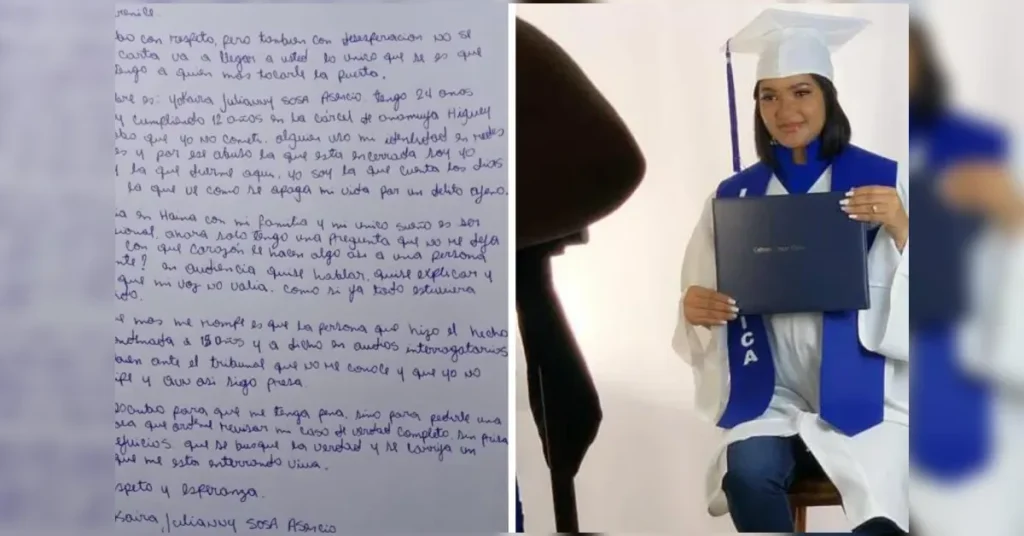 venile.
bo con respeto, pero tambien con desesperacion no se
carta va a llegar a usted lo unico que se es que
tengo a quien mas tocarle la puerta.
bre es: Yokaira Julianny SOSA Asencio. tengo 24 anos
y cumpliendo 12 años en la carcel de anamuya Higuey
que yo no cometi. alguien uso mi identidad en redes
es y por ese abuso la que esta encerrada soy yo
y la que duerme aqui. yo soy la que cuenta los dias
la que ve como se apaga mi vida por un delito ajeno.
ia en Haina con mi familia y mi unico sueño es ser
sional, ahora solo tengo una pregunta que no me deja
con que corazon le hacen algo asi a una persona
nte? en audiencia quise hablar, quise explicar y
que mi voz no valia. como si ya todo estuviera
do.
e mas me rompe es que la persona que hizo el hecho
ndenada a 15 años y a dicho en audios interrogatorios
bien ante el tribunal que no me conoce y que yo no
cipe y aun asi sigo presa.
escribo para que me tenga pena, sino para pedirle una
sola que ordene revisar mi caso de verdad completo, sin prisa
ejuicios. que se busque la verdad y se corrija un
que me esta enterrando viva.
speto y esperanza.
Kaira Julianny SOSA Asencio
ICA